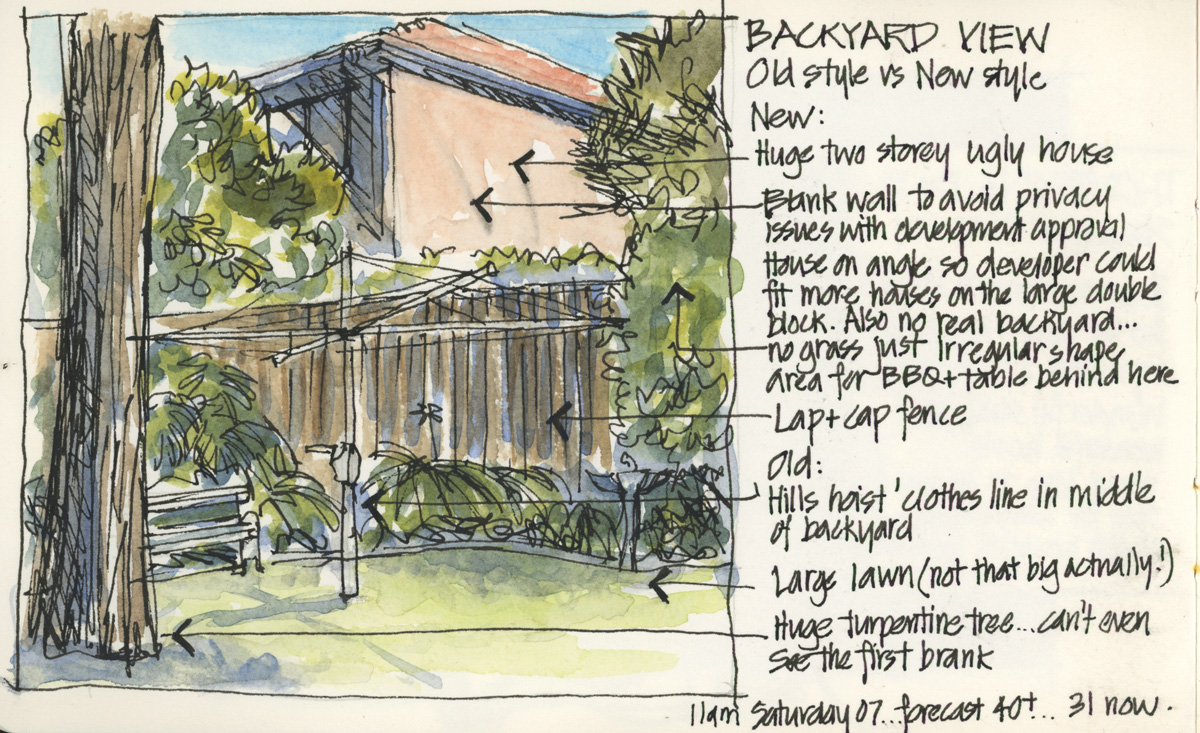 BACKYARD VIEW
Old style vs New style
New:
Huge two storey ugly house
Blank wall to avoid privacy
issues with development approval
House on angle so developer could
fit more houses on the large double
block. Also no real backyard...
no grass just irregular shape
area for BBQ + table behind here
Lap + cap fence
Old:
Hills hoist 'clothes line in middle
of backyard
Large lawn (not that big actually!)
Huge turpentine tree... can't even
see the first brank
11am Saturday 07... forecast 40+... 31 now.